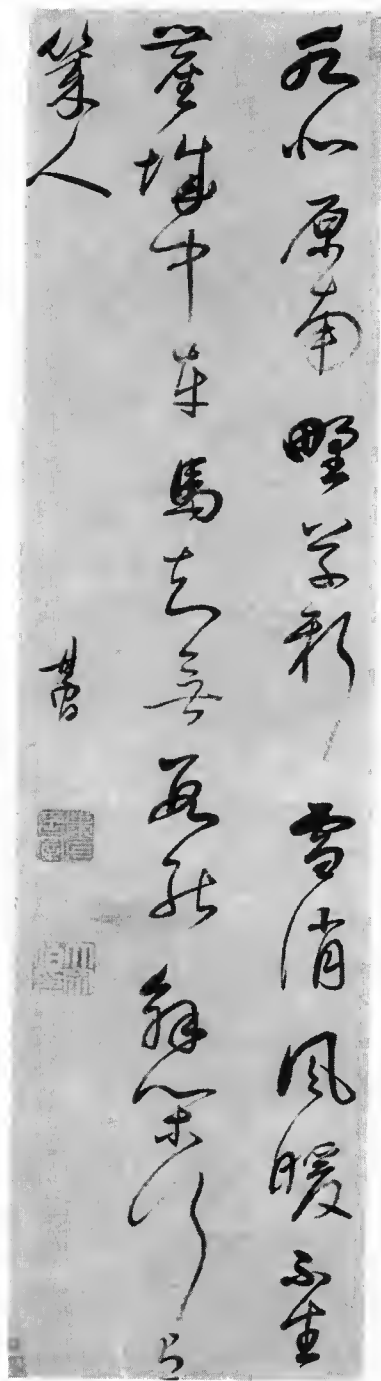 水北原南野草新雪消風暖不生
塵城中車馬應無數能解閑行有
幾人
其昌